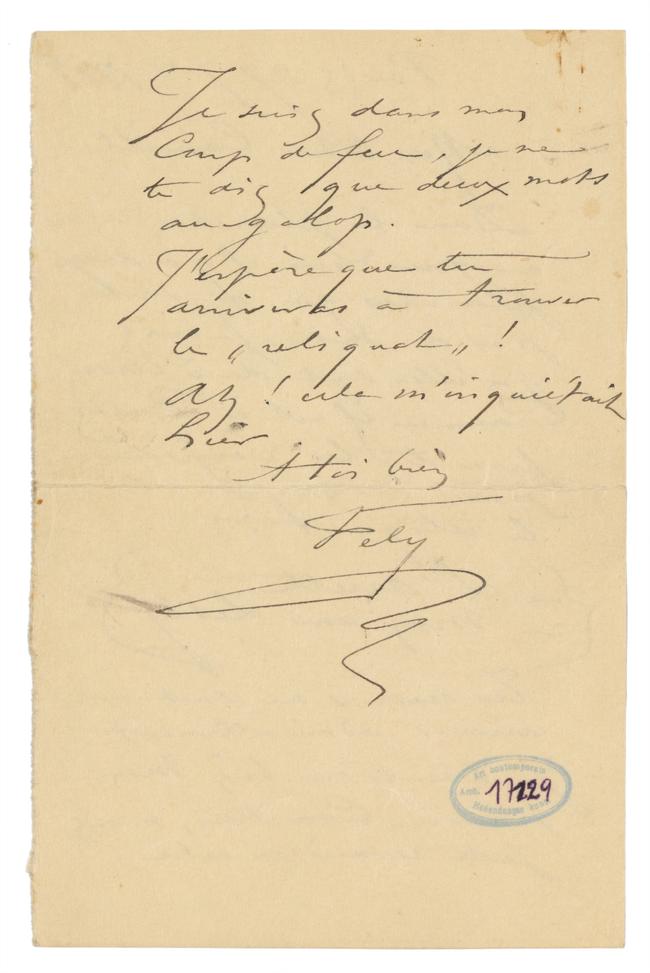 Je suis dans mon
Coup de feu, je ne
te dis que deux mots
au galop.
J'espère que tu
arriveras à trouver
le „reliquat„ !
Ah ! cela m'inquiétait
hier.
A toi bien
Fély
Art contemporain
Arch. 17229
Hedendaagse kunst